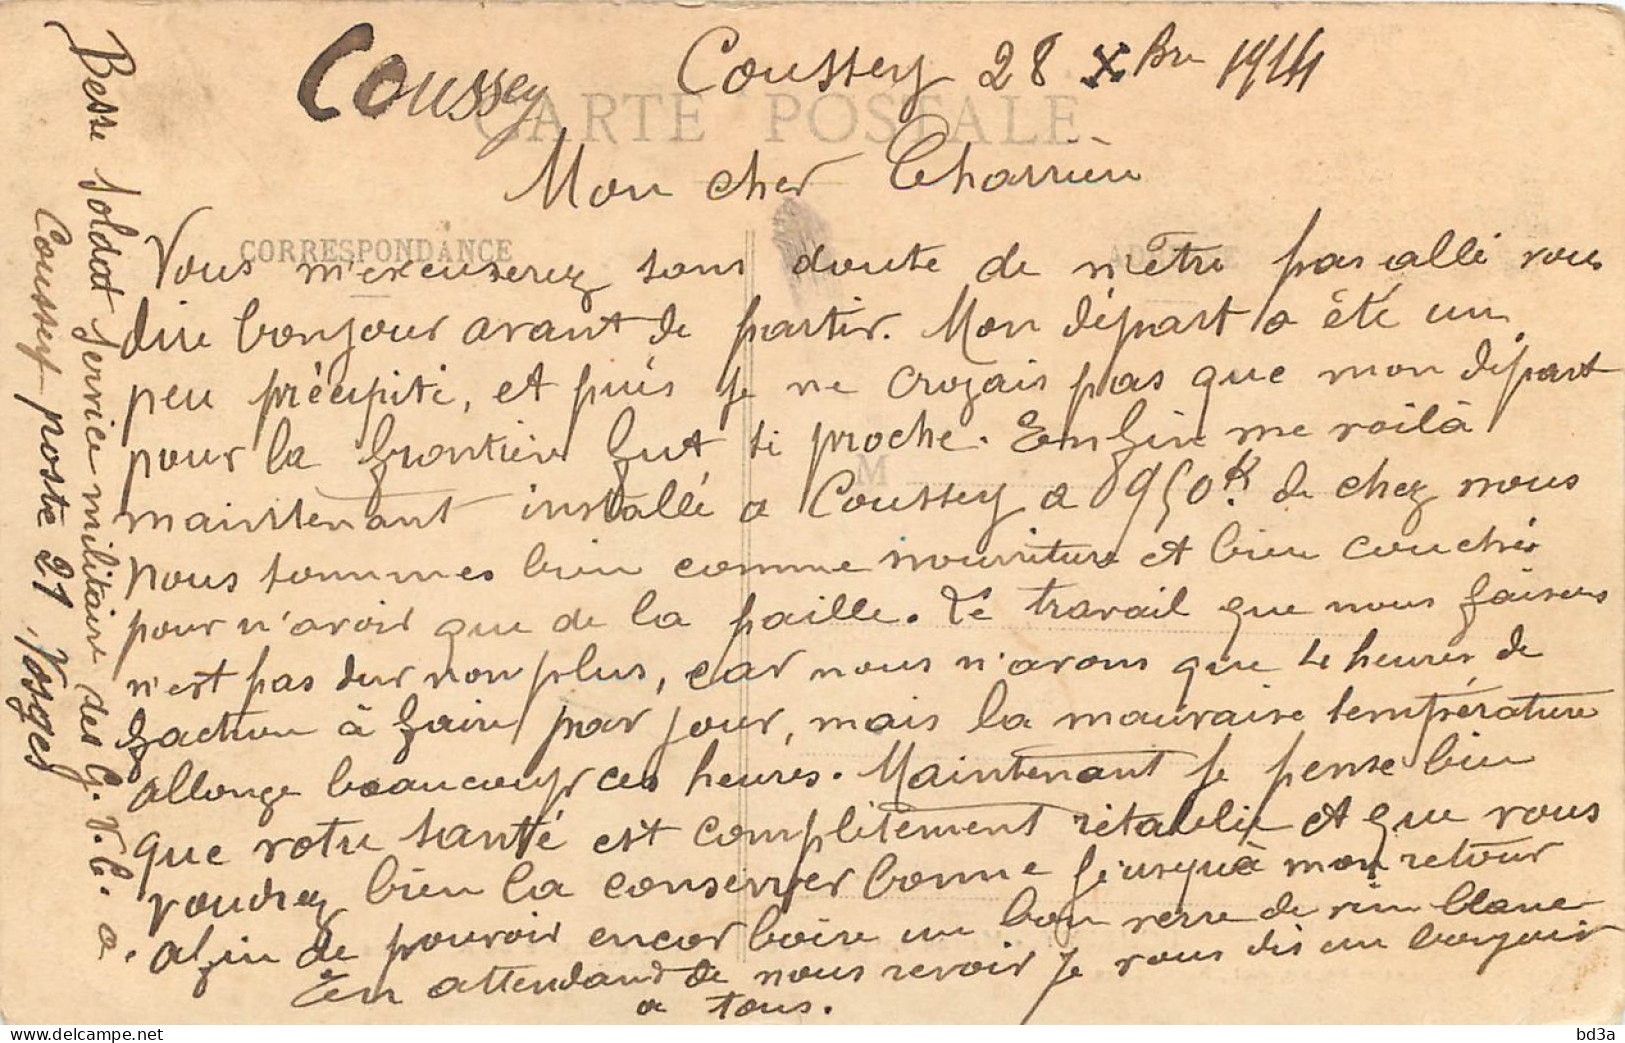 Coussey
Coussey 28 Xbre 1914
CARTE POSTALE
Mon cher Charrière
CORRESPONDANCE
Vous m'excuserez sans doute de n'être pas allé vous
dire bonjour avant de partir. Mon départ a été un
peu précipité, et puis je ne croyais pas que mon départ
pour la frontière fut si proche. Enfin me voilà
M
maintenant installé a Coussey a 950 K. de chez nous
nous sommes bien comme nourriture et bien couchés
pour n'avoir que de la paille. Le travail que nous faisons
n'est pas dur non plus, car nous n'avons que 4 heures de
faction à faire par jour, mais la mauvaise température
allonge beaucoup ces heures. Maintenant je pense bien
que votre santé est complètement rétablie et que vous
voudrez bien la conserver bonne jusqu'à mon retour
afin de pouvoir encor boire un bon verre de vin blanc
En attendand de nous revoir je vous dis un bonjour
a tous.
Besse soldat service militaire des G. V. C. a.
Coussey poste 21, Vosges